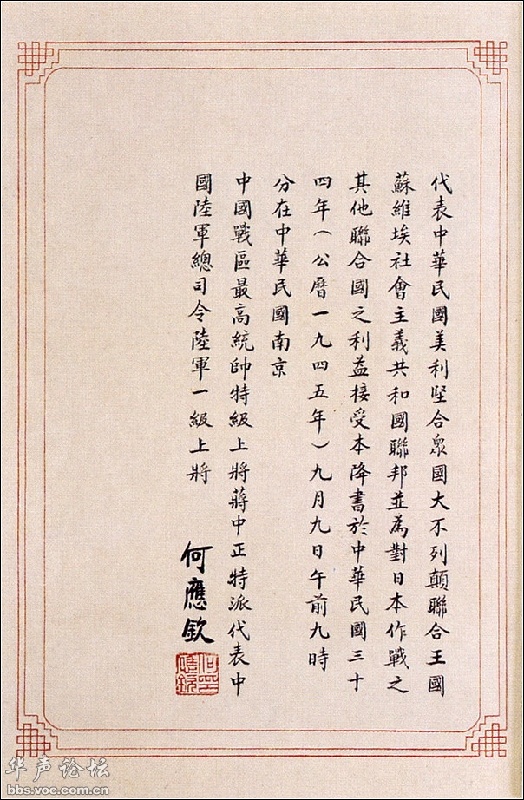 代表中華民國美利堅合衆國大不列顛聯合王國
蘇維埃社會主義共和國聯邦並為對日本作戰之
其他聯合國之利益接受本降書於中華民國三十
四年(公曆一九四五年)九月九日午前九時
分在中華民國南京
中國戰區最高統帥特級上將蔣中正特派代表中
國陸軍總司令陸軍一級上將
何應欽
华声论坛
bbs.voc.com.cn